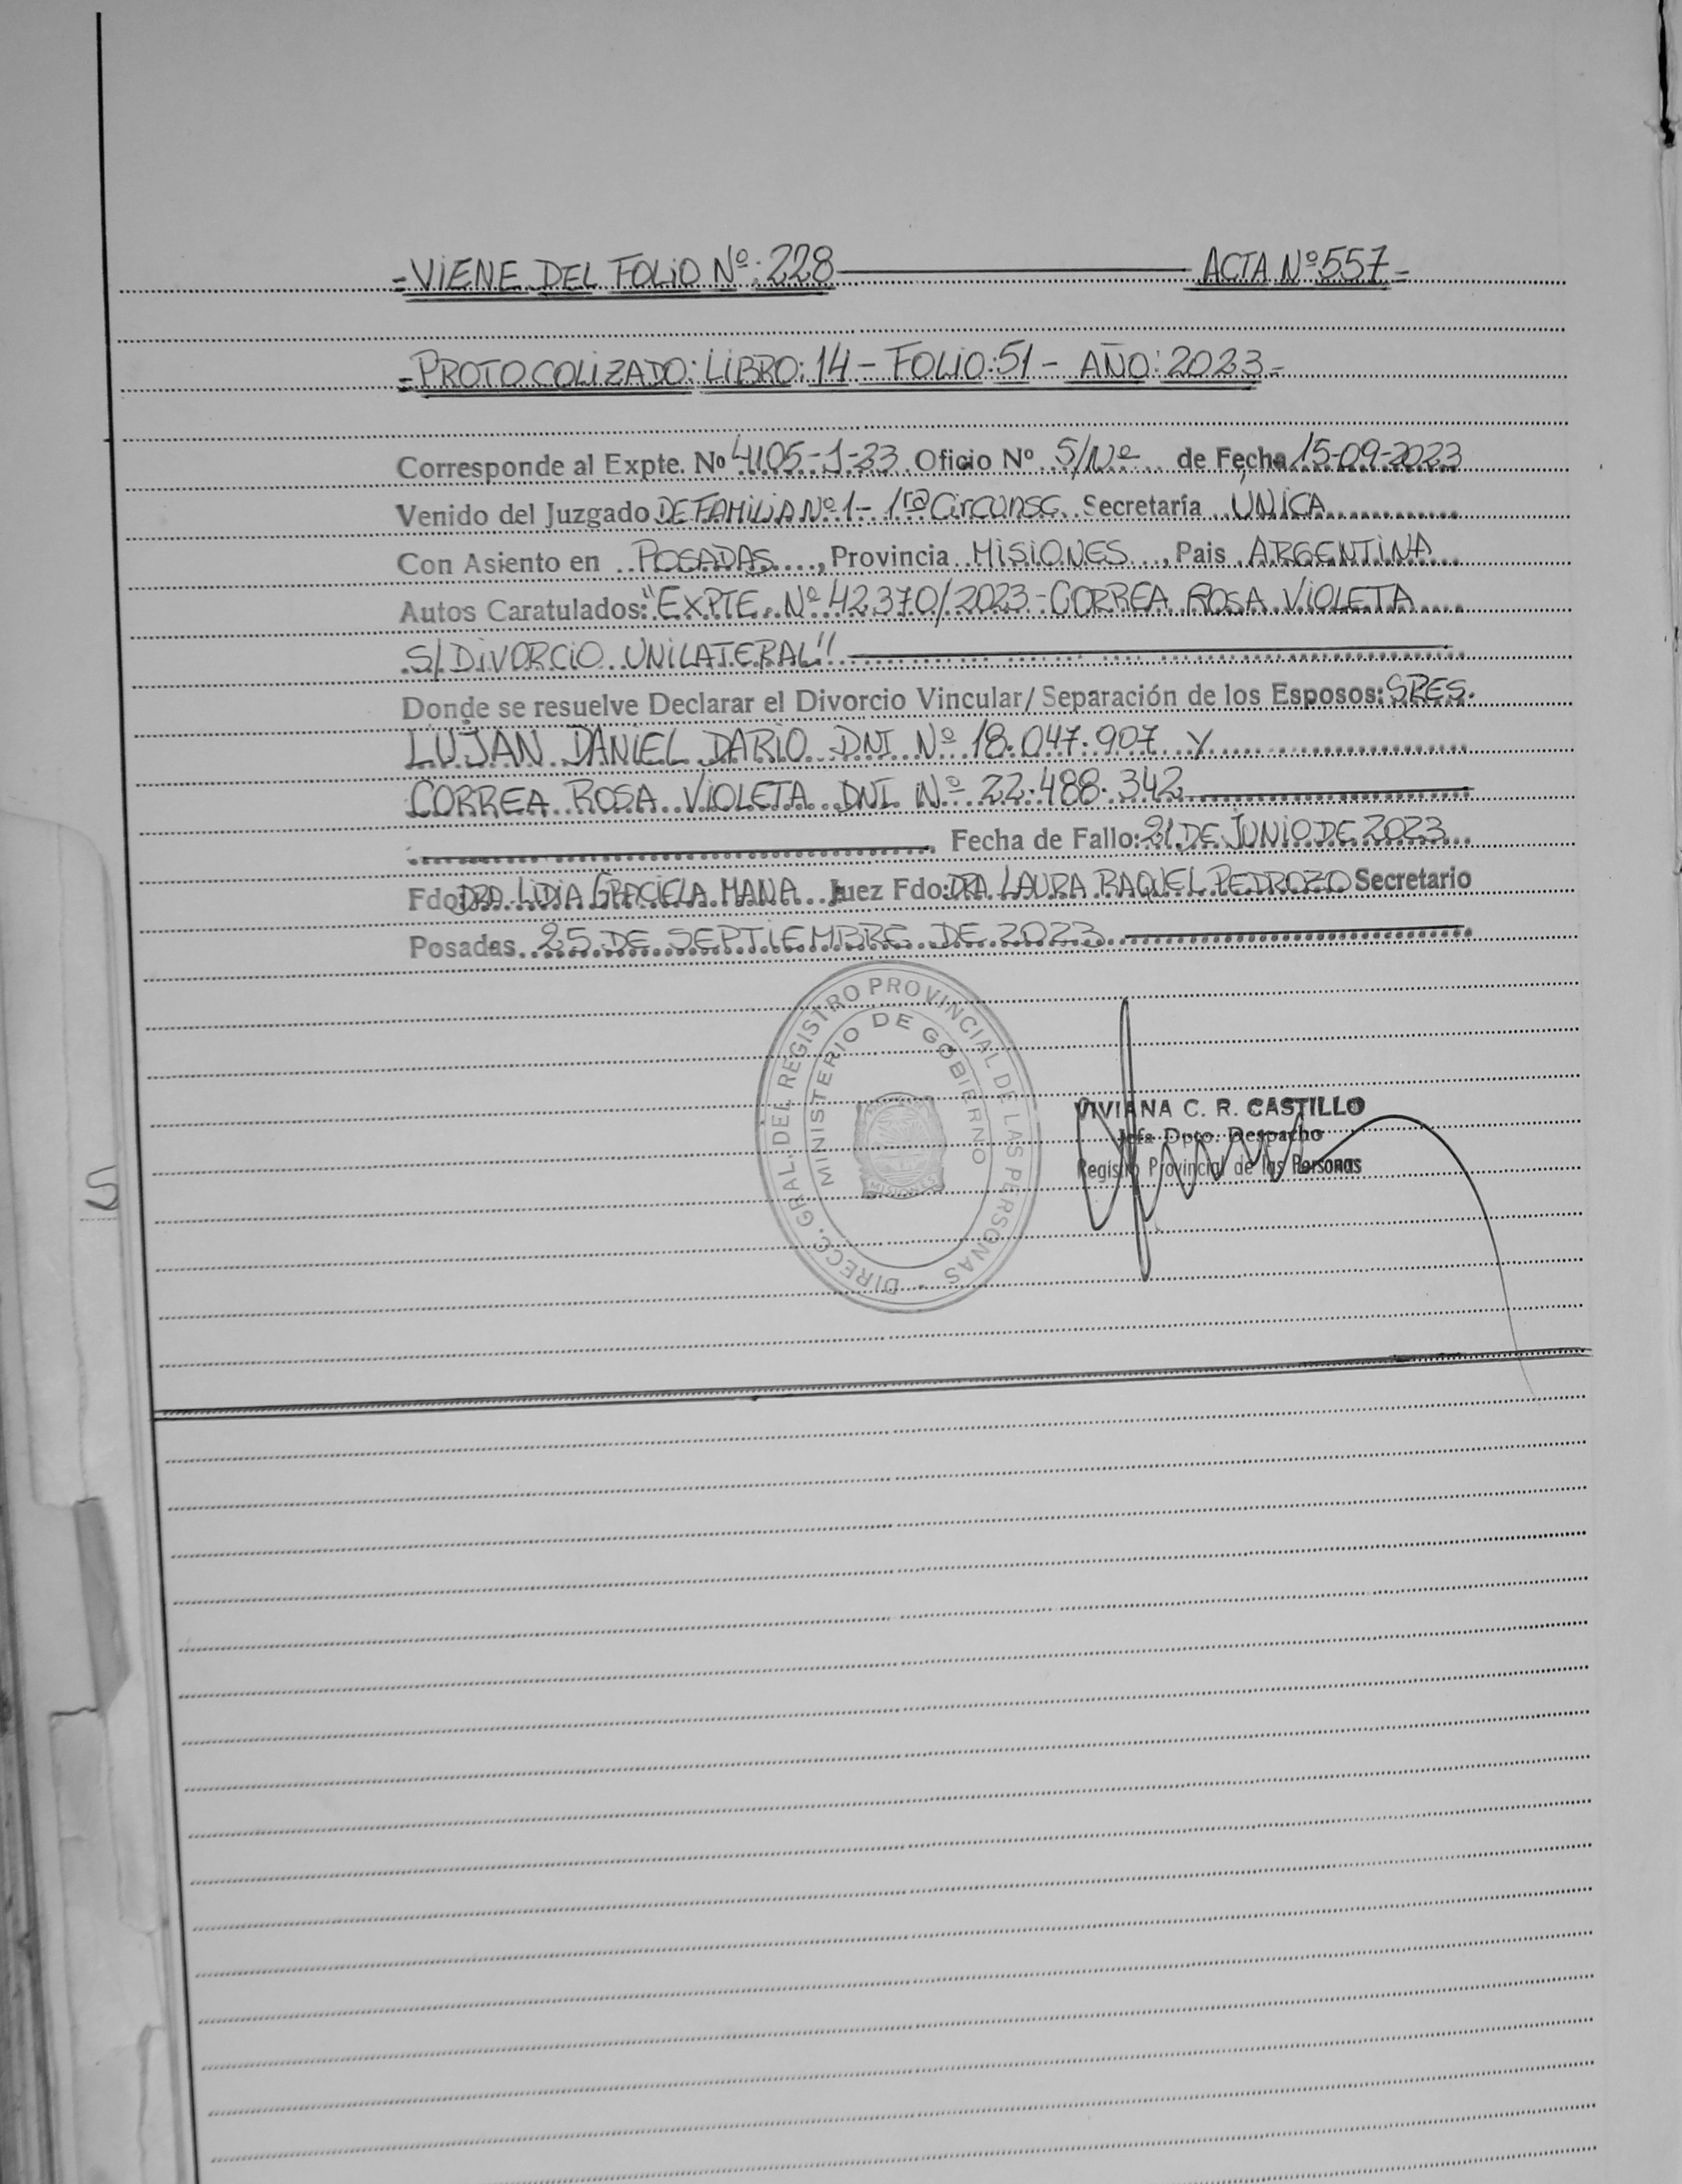 =VIENE DEL FOLIO Nº: 228 ACTA Nº 557=
=PROTOCOLIZADO: LIBRO: 14 - FOLIO: 51 - AÑO: 2023=
Corresponde al Expte. Nº 4105-1-23 Oficio Nº S/Nº de Fecha 15-09-2023
Venido del Juzgado DE FAMILIA Nº 1 - 1ra Circunsc. Secretaría UNICA
Con Asiento en POSADAS, Provincia MISIONES, Pais ARGENTINA
Autos Caratulados: "EXPTE. Nº 42370/2023 - CORREA ROSA VIOLETA
S/ DIVORCIO UNILATERAL"
Donde se resuelve Declarar el Divorcio Vincular/ Separación de los Esposos: SRES.
LUJAN DANIEL DARIO DNI Nº 18.047.907 Y
CORREA ROSA VIOLETA DNI Nº 22.488.342
Fecha de Fallo: 21 DE JUNIO DE 2023
Fdo DRA. LIDIA GRACIELA MANA Juez Fdo: DRA. LAURA RAQUEL PEDROZO Secretario
Posadas 25 DE SEPTIEMBRE DE 2023
DIRECC. GRAL. DEL REGISTRO PROVINCIAL DE LAS PERSONAS -
MINISTERIO DE GOBIERNO
MISIONES
VIVIANA C. R. CASTILLO
Jefa Dpto. Despacho
Registro Provincial de las Personas